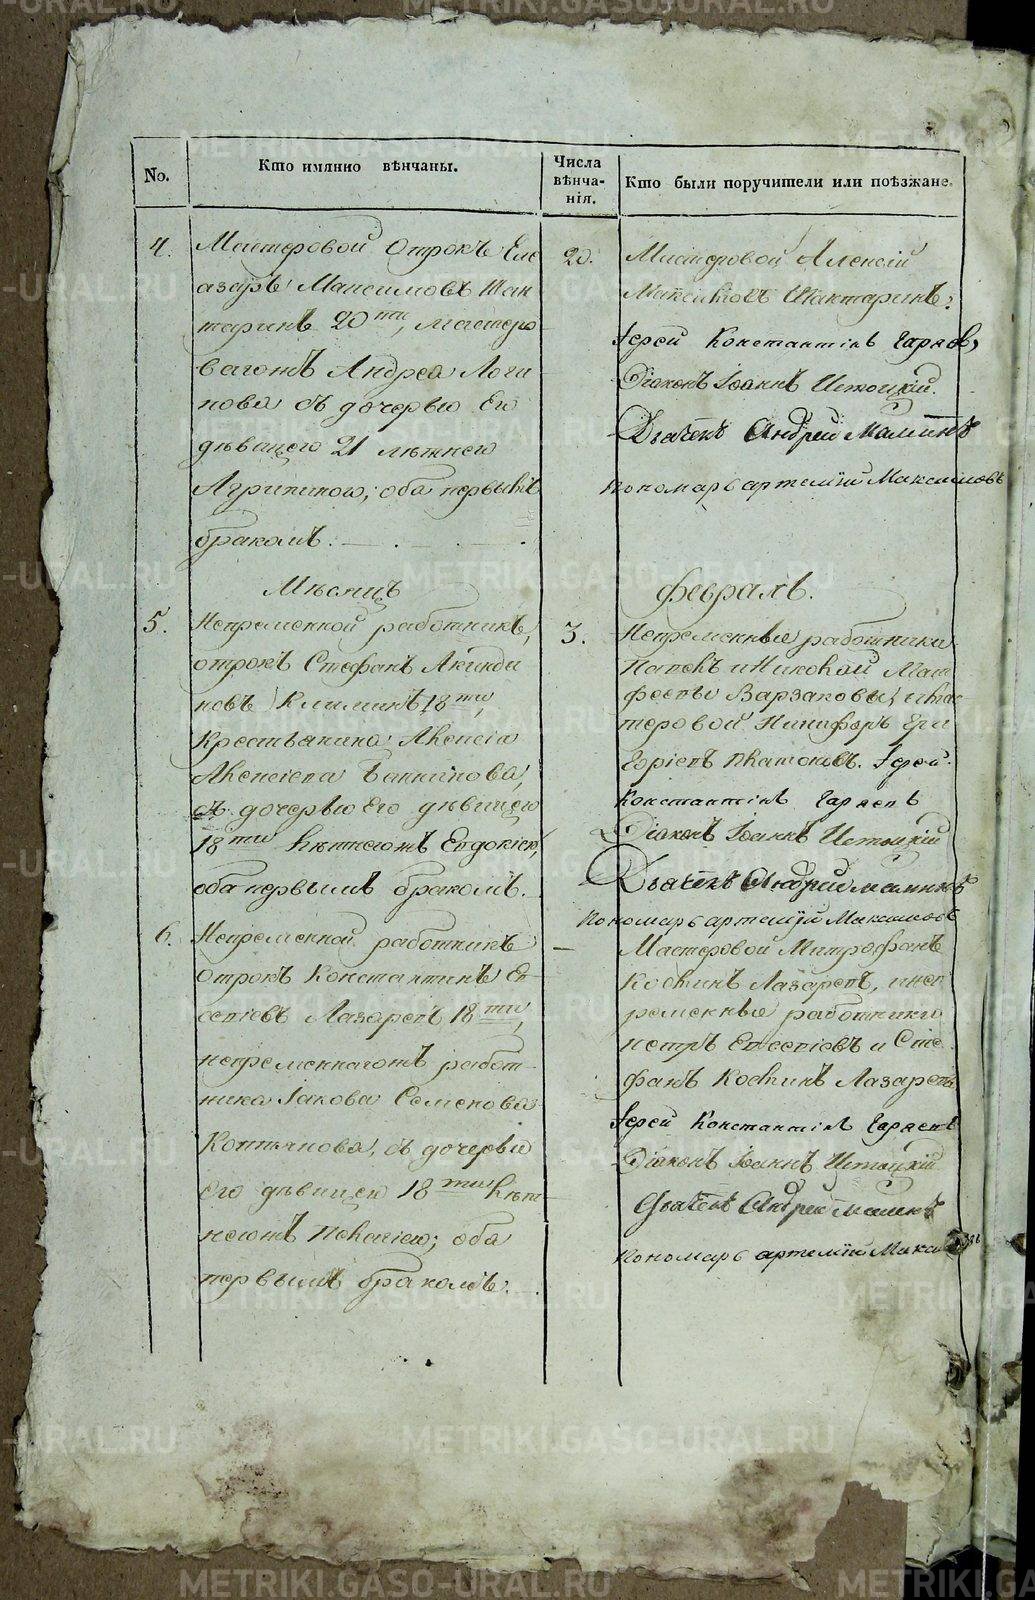 No.
Кто имянно вѣнчаны.
Числа
вѣнча-
нія.
Кто были поручители или поѣзжане.
4.
Мастеровой Отрокъ Еле
азаръ Максимовъ Шак
таринъ 20ти, мастеро
вагожъ Андрея Логи
нова съ дочерью Его
дѣвицею 21 лѣтнею
Агрипиною; оба первымъ
бракомъ.
20.
Мастеровой Алексѣй
Максимовъ Шактаринъ;
Іерей Константинъ
Діаконъ Іоаннъ Истоцкій.
Дьячекъ Андрей Малининъ
пономарь артемій Максимовъ
Мѣсяцъ
Февраль.
5.
Непременной работникъ,
отрокъ Стефанъ Акинди
новъ Климинъ 18ти,
Крестьянина Алексѣя
Алексѣева
съ дочерью Его дѣвицею
18ти лѣтнеюжъ Евдокіею,
оба первымъ бракомъ.
3.
Непременные работники
Павелъ и Николай Мат
феевы Варзаковы, и мас
теровой Никифоръ Его
ровъ Платоновъ. Іерей
Константинъ
Діаконъ Іоаннъ Истоцкій
Дьячекъ Андрей малининъ
пономарь артемій Максимовъ
6.
Непременной работникъ
отрокъ Константинъ Ев
сѣевъ Лазаревъ 18ти,
непременнагожъ работ
ника Іакова Семенова
съ дочерью
его дѣвицею 18ти лѣт
неюжъ Пелагіею; оба
первымъ бракомъ.
Мастеровой Митрофанъ
Лазаревъ, и неп
ременные работники
петръ Евсѣевъ и Сте
фанъ Лазаревъ
Іерей Константинъ
Діаконъ Іоаннъ Истоцкій
Дьячекъ Андрей малининъ
пономарь артемій Макси
METRIKI.GASO-URAL.RU